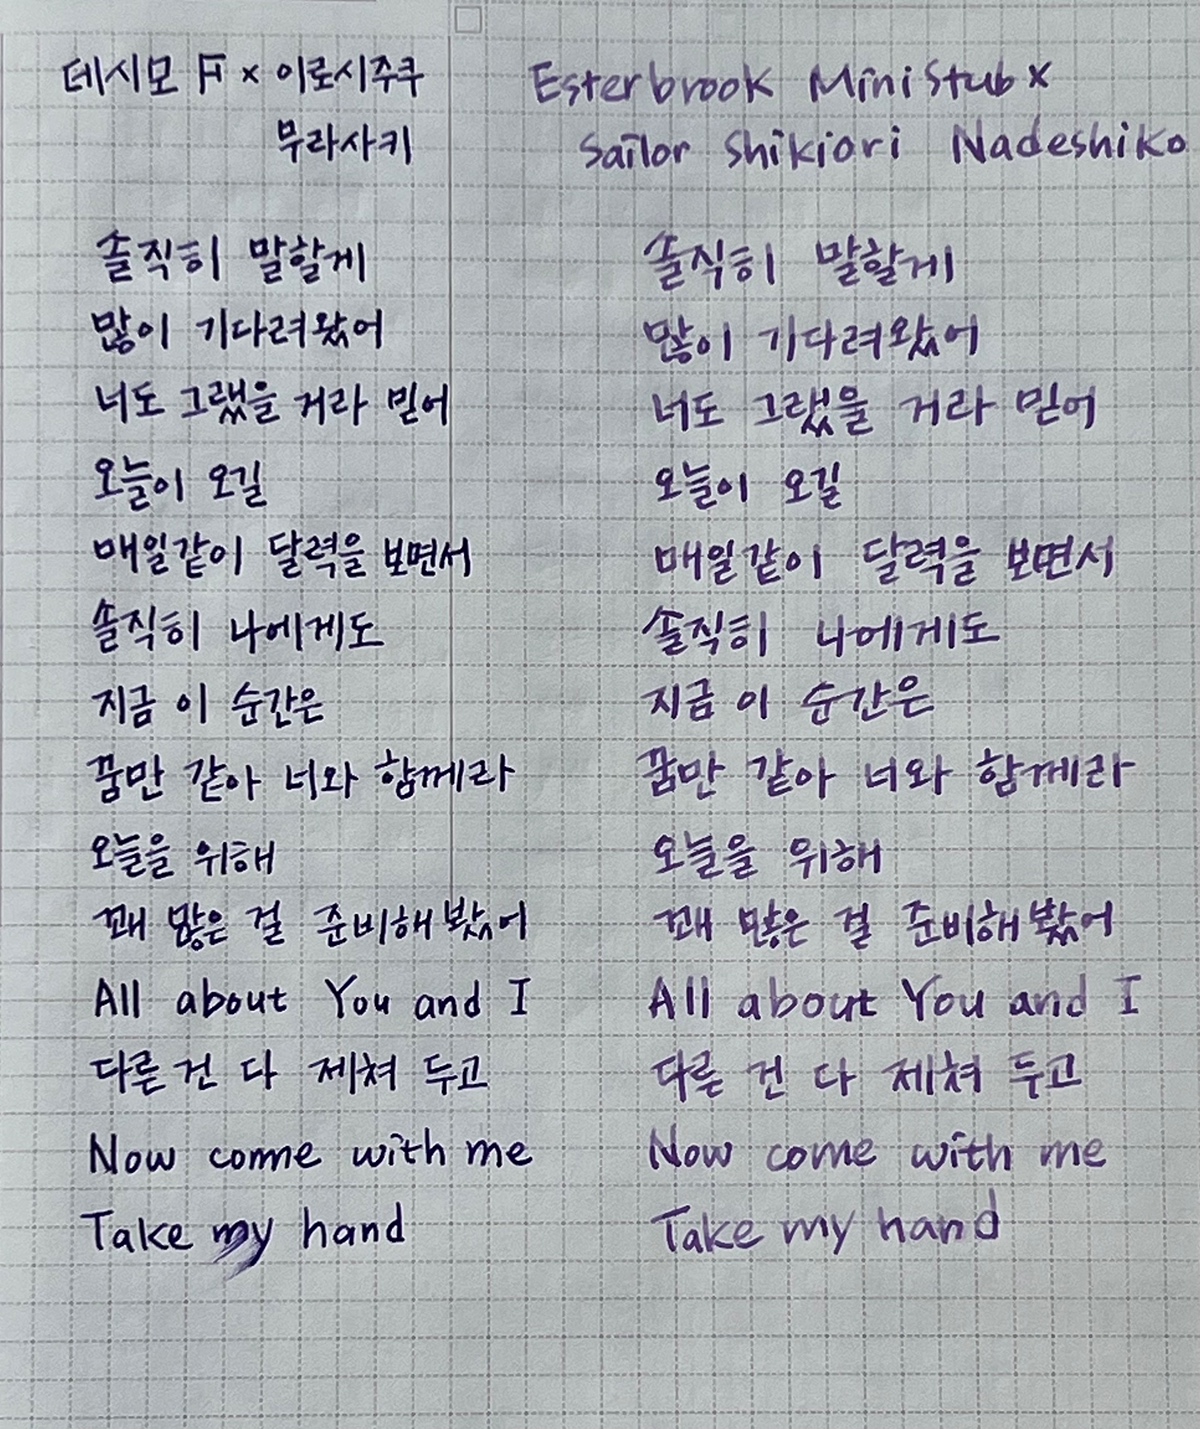 데시모 F × 이로시주쿠
무라사키
솔직히 말할게
많이 기다려왔어
너도 그랬을 거라 믿어
오늘이 오길
매일같이 달력을 보면서
솔직히 나에게도
지금 이 순간은
꿈만 같아 너와 함께라
오늘을 위해
꽤 많은 걸 준비해 봤어
All about You and I
다른 건 다 제쳐 두고
Now come with me
Take my hand
Esterbrook Mini Stub ×
Sailor Shikiori Nadeshiko
솔직히 말할게
많이 기다려왔어
너도 그랬을 거라 믿어
오늘이 오길
매일같이 달력을 보면서
솔직히 나에게도
지금 이 순간은
꿈만 같아 너와 함께라
오늘을 위해
꽤 많은 걸 준비해 봤어
All about You and I
다른 건 다 제쳐 두고
Now come with me
Take my hand